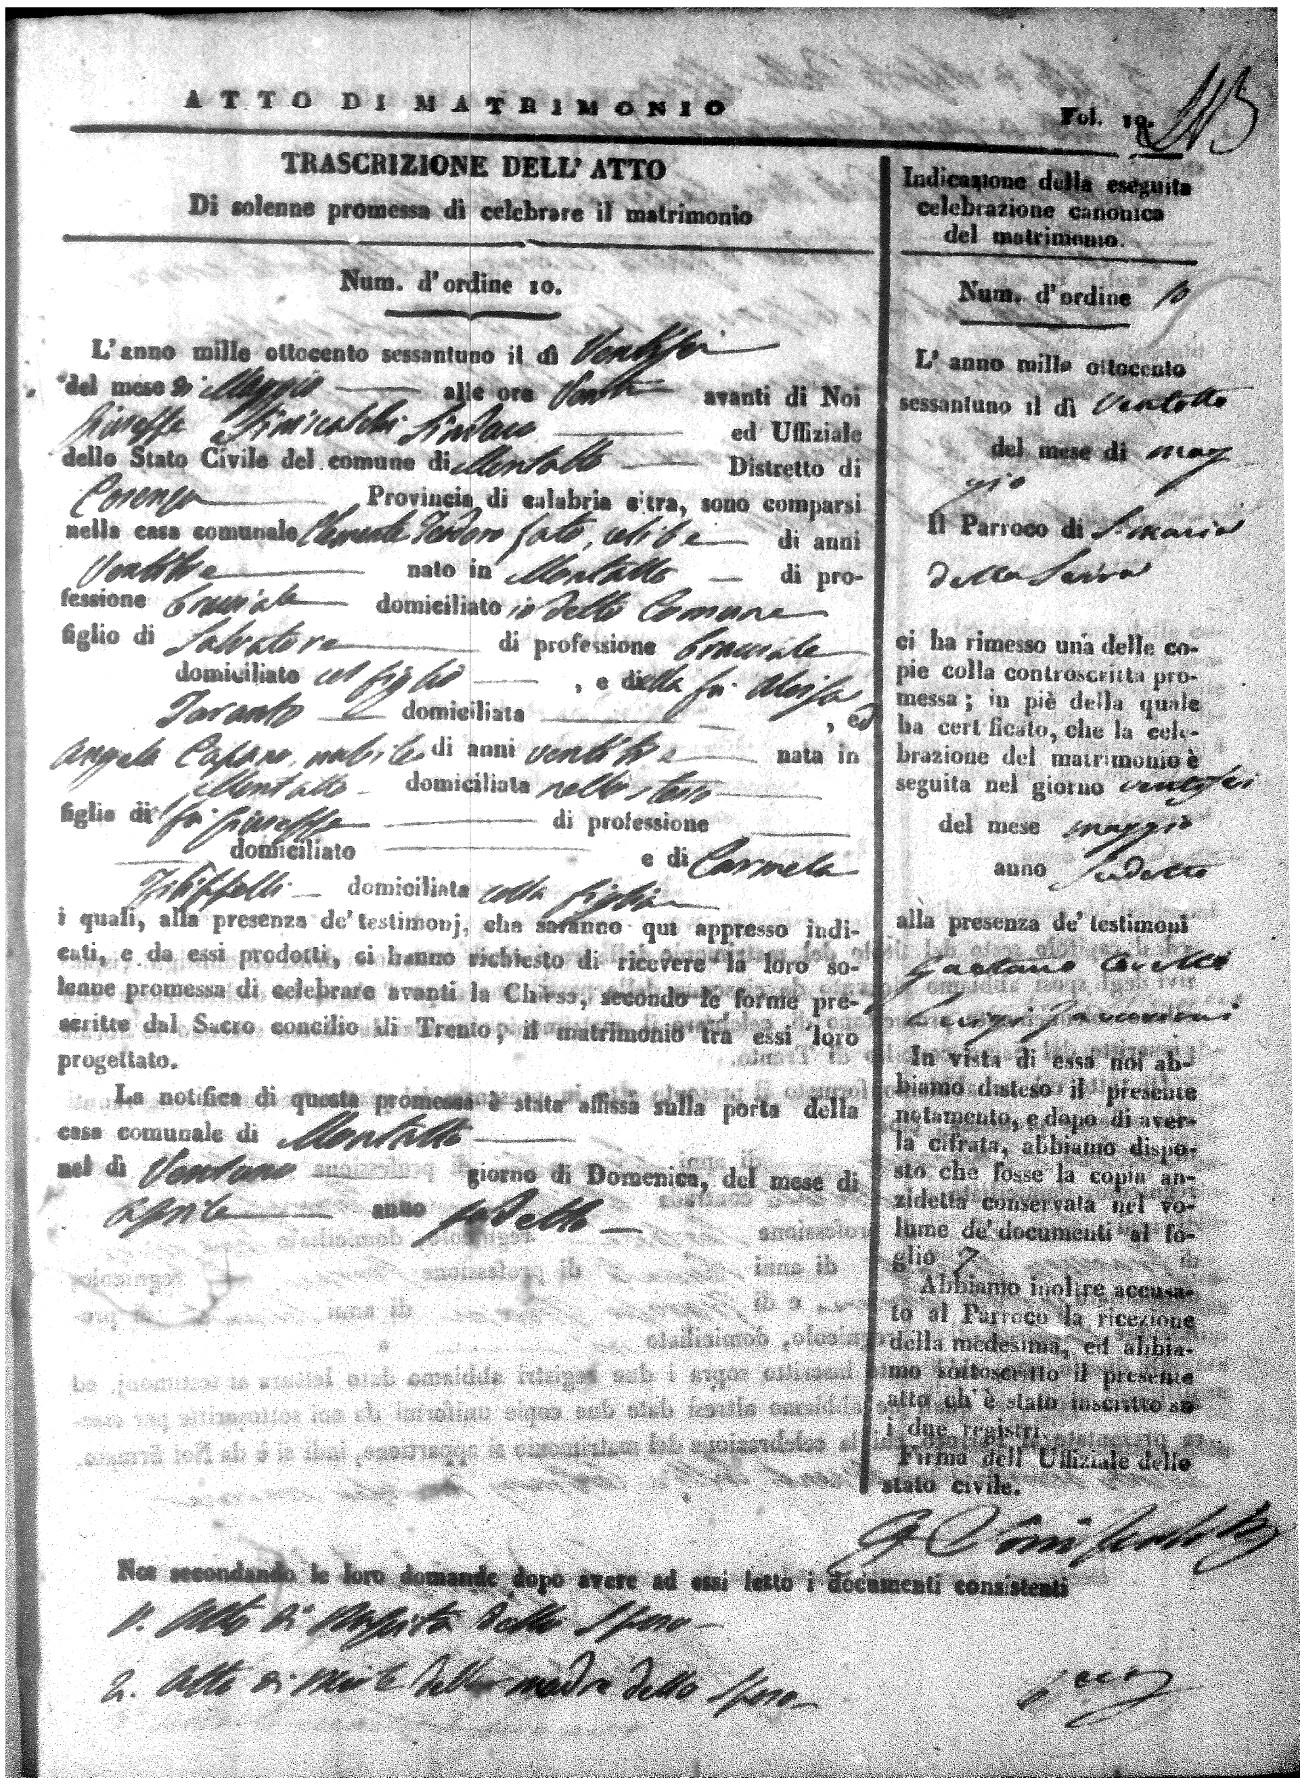 ATTO DI MATRIMONIO
Fol. 10.
TRASCRIZIONE DELL' ATTO
Di solenne promessa di celebrare il matrimonio
Num. d'ordine 10.
L'anno mille ottocento sessantuno il dì Ventisei
del mese di Maggio alle ore Venti avanti di Noi
Giuseppe Sindaco ed Uffiziale
dello Stato Civile del comune di Montalto Distretto di
Cosenza Provincia di calabria citra, sono comparsi
nella casa comunale Clemente Teodoro Gato, celibe di anni
Ventitre nato in Montalto di pro-
fessione bracciale domiciliato in detto Comune
figlio di Salvatore di professione bracciale
domiciliato col figlio , e della fu Aloisa
Taranto domiciliata , ed
Angela Caparo, nubile di anni ventitre nata in
Montalto domiciliata nello stesso
figlia di fu Giuseppe di professione
domiciliato e di Carmela
Filippelli domiciliata colla figlia
i quali, alla presenza de' testimonj, che saranno qui appresso indi-
cati, e da essi prodotti, ci hanno richiesto di ricevere la loro so-
lenne promessa di celebrare avanti la Chiesa, secondo le forme pre-
scritte dal Sacro concilio di Trento, il matrimonio tra essi loro
progettato.
La notifica di questa promessa è stata affissa sulla porta della
casa comunale di Montalto
nel dì Ventuno giorno di Domenica, del mese di
aprile anno sudetto
Indicazione della eseguita
celebrazione canonica
del matrimonio.
Num. d'ordine 10
L' anno mille ottocento
sessantuno il dì Ventotto
del mese di mag
gio
Il Parroco di S. Maria
della Serra
ci ha rimesso una delle co-
pie colla controscritta pro-
messa; in piè della quale
ha certificato, che la cele-
brazione del matrimonio è
seguita nel giorno ventisei
del mese maggio
anno sudetto
alla presenza de' testimoni
Gaetano
Luigi
In vista di essa noi ab-
biamo disteso il presente
notamento, e dopo di aver-
la cifrata, abbiamo dispo-
sto che fosse la copia an-
zidetta conservata nel vo-
lume de' documenti al fo-
glio 7
Abbiamo inoltre accusa-
to al Parroco la ricezione
della medesima, ed abbia-
mo sottoscritto il presente
atto ch' è stato inscritto su
i due registri.
Firma dell' Uffiziale dello
stato civile.
Noi secondando le loro domande dopo avere ad essi letto i documenti consistenti
1. Atto di Nascita dello Sposo
2. Atto di Morte della madre dello Sposo